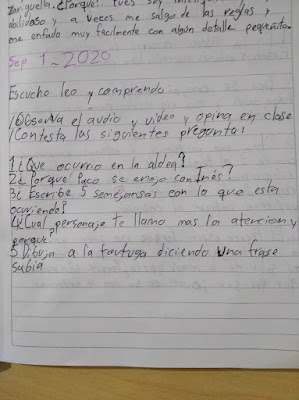 Zariguella. ¿Porque? Pues soy
habilidoso y a veces me salgo de las reglas y
me enfado muy facilmente con algún detalle pequeñito.
Sep 1-2020
Escucho leo y comprendo
Observa el audio y video y opina en clase
Contesta las siguientes pregunta:
1¿Que ocurrio en la aldea?
2¿Porque Paco se enojo con Inés?
3¿Escribe 5 semejansas con lo que esta
ocuriendo?
4¿Cual personaje te llamo mas la atencion y
porque?
5 Dibuja a la tortuga diciendo una frase
sabia